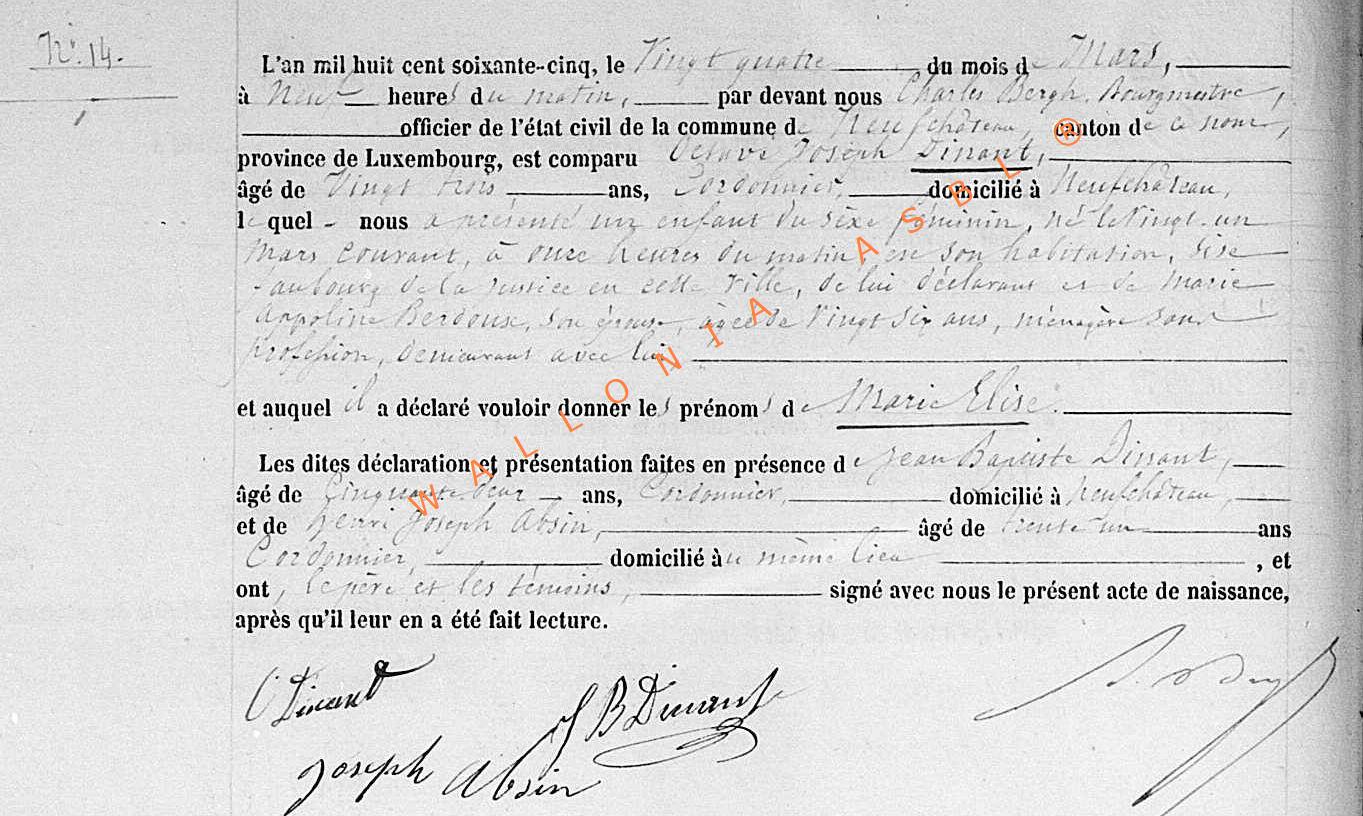 N° 14.
L'an mil huit cent soixante-cinq, le Vingt quatre du mois de Mars,
à Neuf heures du matin, par devant nous Charles Bergh, Bourgmestre,
officier de l'état civil de la commune de Neufchâteau, canton de ce nom,
province de Luxembourg, est comparu Octave Joseph Dinant,
âgé de Vingt trois ans, Cordonnier, domicilié à Neufchâteau,
le quel - nous a présenté un enfant du sèxe féminin, né le Vingt-un
Mars courant, à onze heures du matin, en son habitation, sise
faubourg de la Justice en cette Ville, de lui déclarant et de Marie
Appoline Berdoux, son épouse, âgée de Vingt six ans, ménagère sans
profession, demeurant avec lui
et auquel il a déclaré vouloir donner les prénoms de Marie Elise.
Les dites déclaration et présentation faites en présence de Jean Baptiste Dinant,
âgé de Cinquante-deux ans, Cordonnier, domicilié à Neufchâteau,
et de Henri Joseph Absin, âgé de trente-un ans
Cordonnier, domicilié àu même lieu, et
ont, le père et les témoins, signé avec nous le présent acte de naissance,
après qu'il leur en a été fait lecture.
O Dinant
J B Dinant
Joseph Absin
WALLONIA ASBL ®